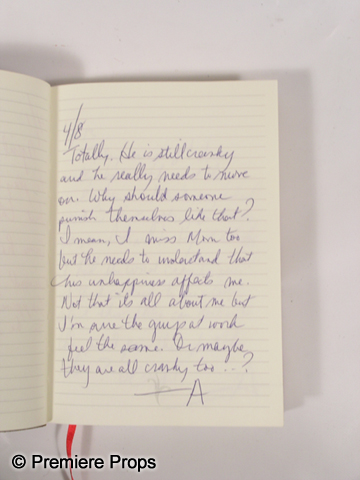 4/8
Totally. He is still cranky
and he really needs to move
on. Why should someone
punish themselves like that?
I mean, I miss Mom too
but he needs to understand that
his unhappiness affects me.
Not that it's all about me but
I'm sure the guys at work
feel the same. Or maybe
they are all cranky too...?
—A
© Premiere Props